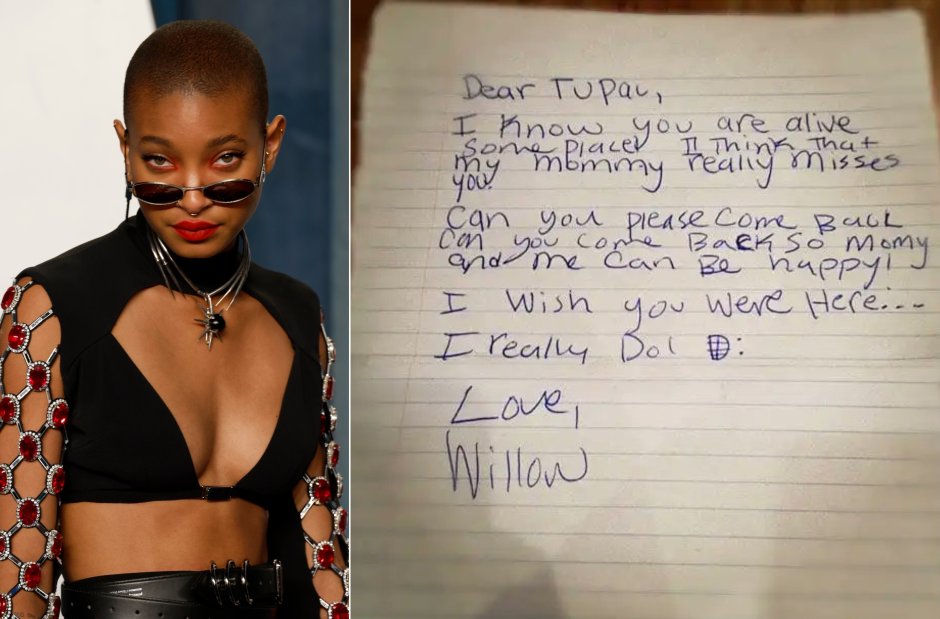 Dear Tupac,
I Know you are alive
some place! I Think That
my mommy really misses
you.
Can you please come Back
Can you come Back so Momy
and me can Be happy!
I wish you were Here....
I really Do!
Love,
Willow